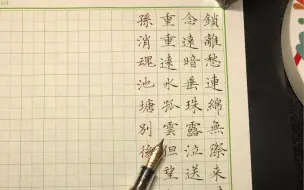 鎖離愁連綿無際來
念遠暗垂珠露泣送
重重遠水孤雲但望
孫消魂池塘別後